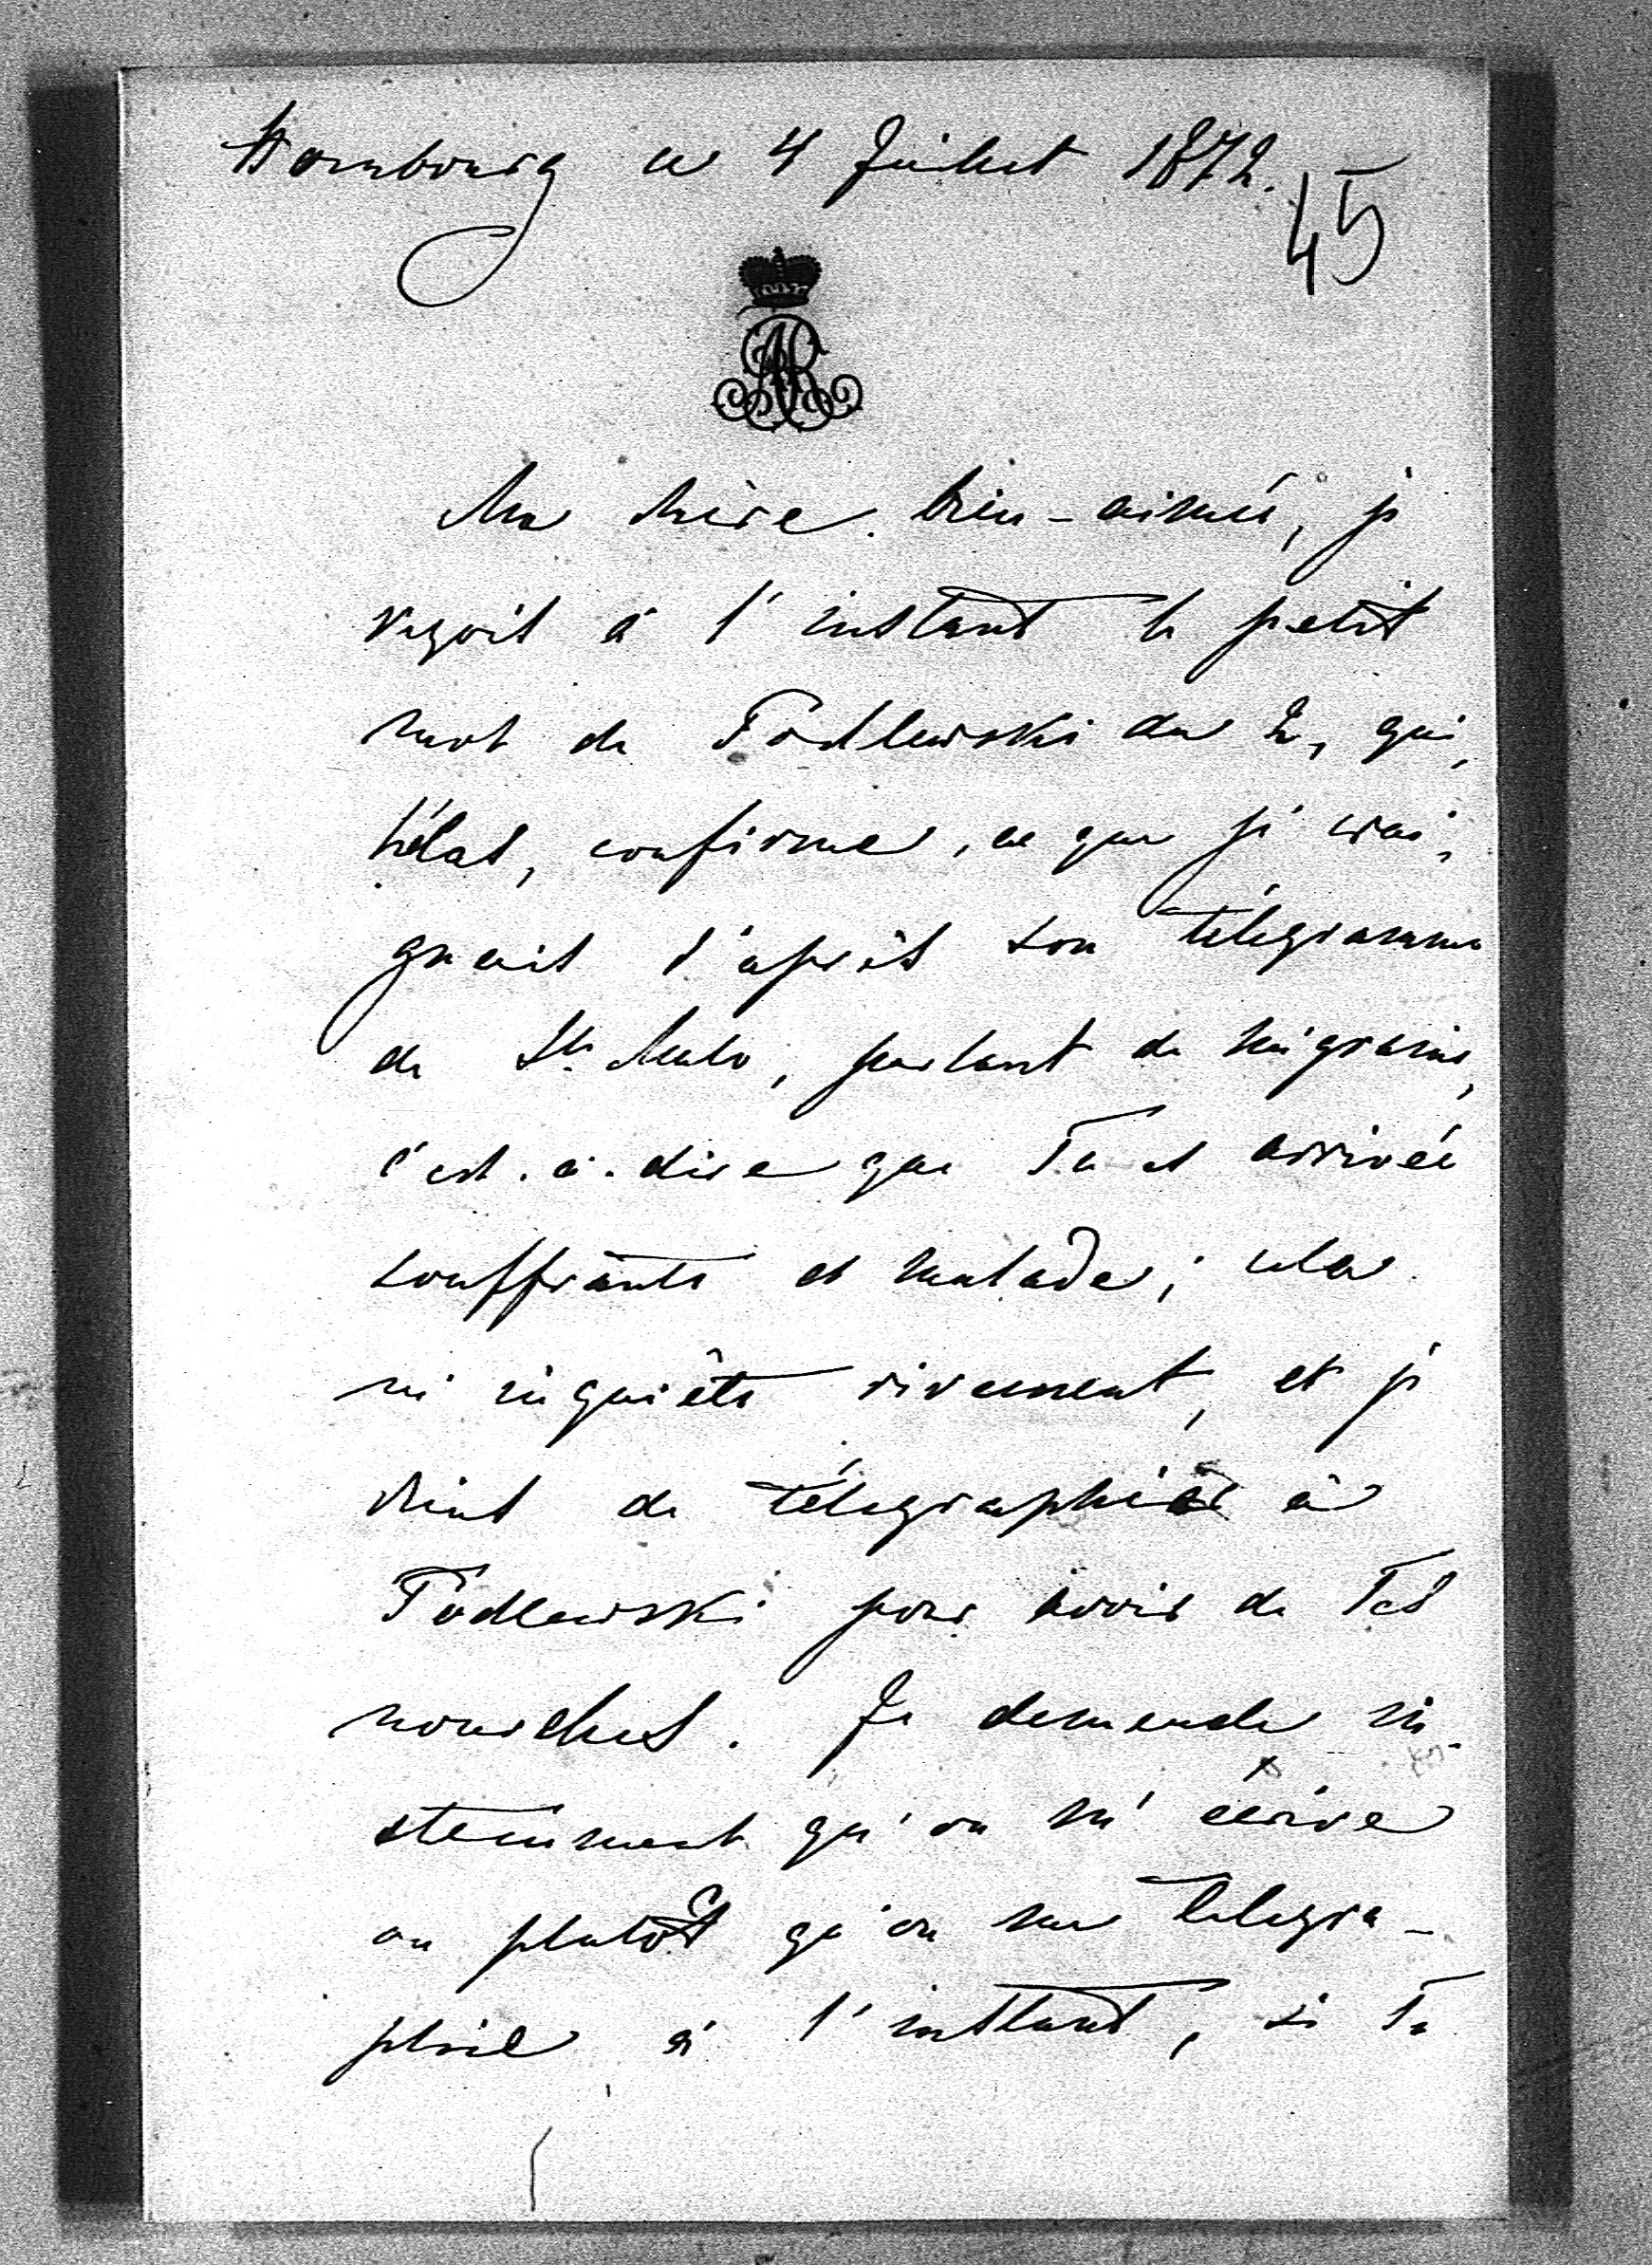 Hombourg ce 4 Juillet 1872.
45
Ma chère bien-aimée, je
reçois à l'instant le petit
mot de Podlewski du 2, qui,
hélas, confirme, ce que je crai-
gnais d'après ton télégramme
de St. Malo, parlant de migraine,
c'est-à-dire que Tu es arrivée
souffrante et malade; cela
m'inquiète vivement, et je
viens de télégraphier à
Podlewski pour avoir de Tes
nouvelles. Je demande in-
stamment qu'on m'écrive
ou plutôt qu'on me télégra-
phie à l'instant, si Tu